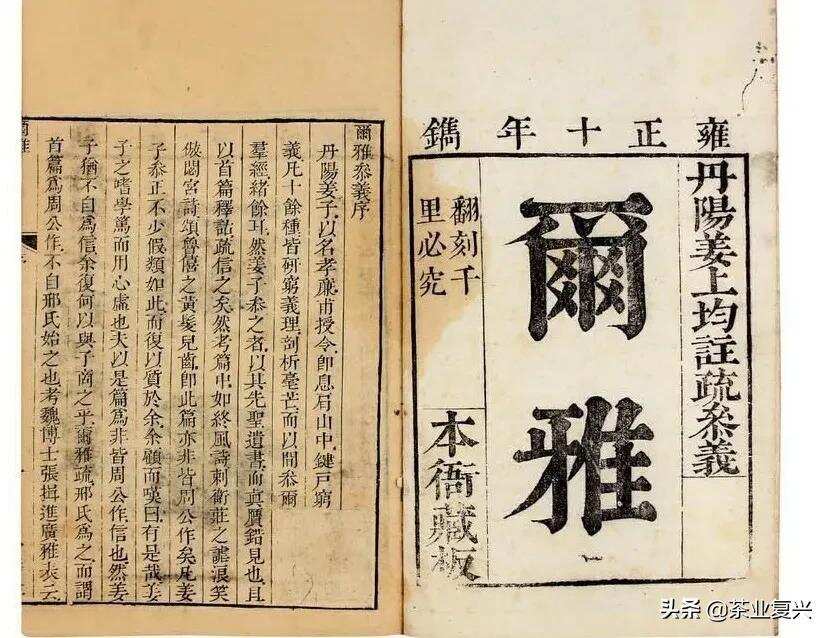 雍正十年鐫
丹陽姜上均註疏叅義
爾雅
翻刻千
里必究
本衙藏板
爾雅叅義序
丹陽姜子以名孝廉甫授令卽息肩山中鍵戸窮
義凡十餘種皆硏窮義理剖析毫芒而以開叅爾
羣經緒餘耳然姜子叅之者以其先聖遺書而真贋錯見也且
以首篇釋詁疏信之矣然考篇中如終風詩刺衛莊之謔浪笑
傲閟宮詩頌魯僖之黃髮兒齒卽此篇亦非皆周公作矣凡姜
子叅正不少假類如此而復以質於余余顧而嘆曰有是哉姜
子之嗜學篤而用心虛也夫以是篇爲非皆周公作信也然姜
子猶不自爲信余復何以與子商之乎爾雅疏邢氏爲之而謂
首篇爲周公作不自邢氏始之也考魏博士張揖進廣雅表云
爾雅
头条 @茶业复兴